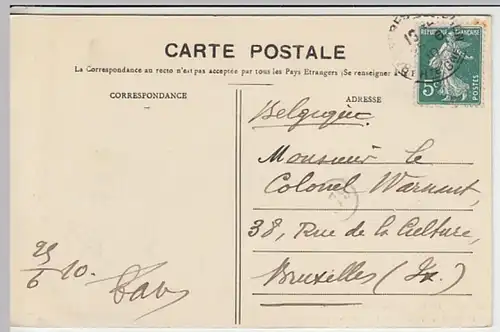 CARTE POSTALE
La Correspondance au recto n'est pas acceptée par tous les Pays Etrangers (Se renseigner
CORRESPONDANCE
ADRESSE
RÉPUBLIQUE FRANÇAISE
5c
POSTES
Belgique.
Monsieur le
Colonel Warnant,
38, Rue de la Culture,
Bruxelles (Ix.)
25/6 10.